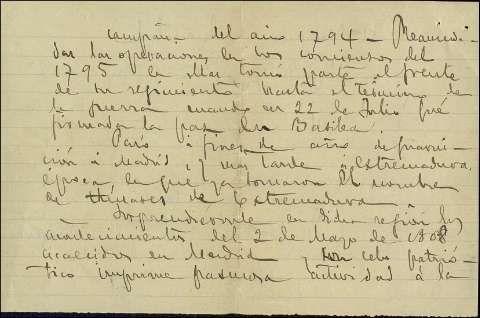 campaña del año 1794 - Reanuda-
das las operaciones en los comienzos del
1795 en ellas tomó parte al frente
de su regimiento hasta el término de
la guerra cuando en 22 de Julio fué
firmada la paz en Basilea.
Pasó á fines de año de guarni-
ción á Madrid y mas tarde á Extremadura,
época en que ya tomaron el nombre
de Húsares de Extremadura.
Sorprendieronle en dicha región los
acontecimientos del 2 de Mayo de 1808
acaecidos en Madrid y con celo patrió-
tico imprime pasmosa actividad á la